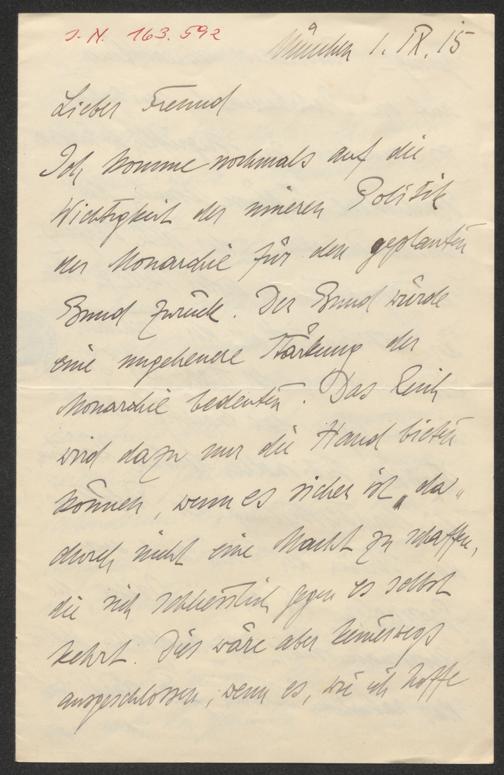 J. N. 163.592
München 1. IX. 15
Lieber Freund
Ich komme nochmals auf die
Wichtigkeit der inneren Politik
der Monarchie für den geplanten
Bund zurück. Der Bund würde
eine ungeheuere Stärkung der
Monarchie bedeuten. Das Reich
wird dazu nur die Hand bieten
können, wenn es sicher ist „da„
durch nicht eine Macht zu schaffen,
die sich schliesslich gegen es selbst
kehrt. Dies wäre aber keineswegs
ausgeschlossen, wenn es, wie ich hoffe